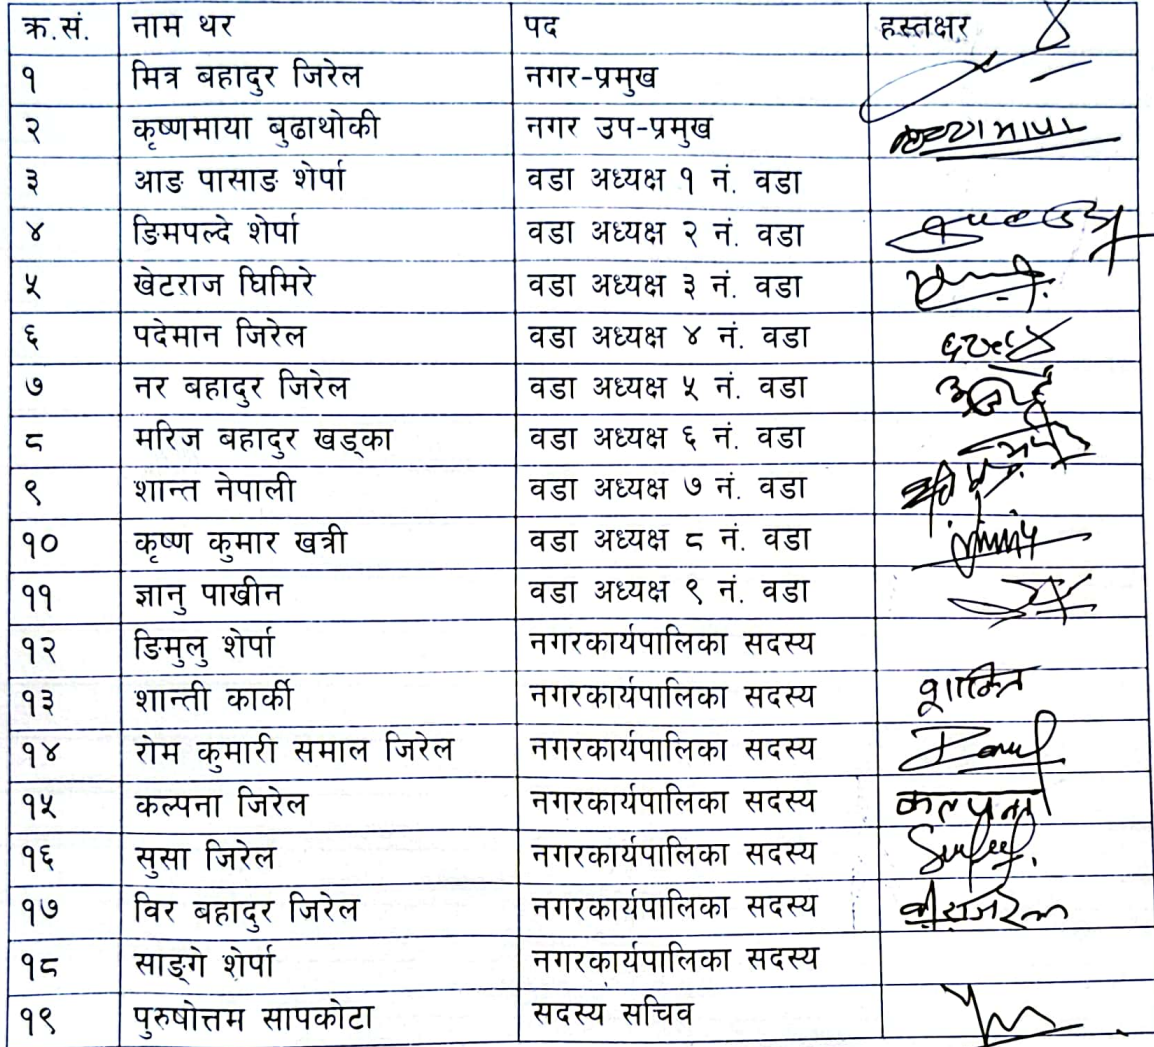 क्र.सं. नाम थर पद हस्तक्षर
१ मित्र बहादुर जिरेल नगर-प्रमुख
२ कृष्णमाया बुढाथोकी नगर उप-प्रमुख
३ आङ पासाङ शेर्पा वडा अध्यक्ष १ नं. वडा
४ ङिमपल्दे शेर्पा वडा अध्यक्ष २ नं. वडा
५ खेटराज घिमिरे वडा अध्यक्ष ३ नं. वडा
६ पदेमान जिरेल वडा अध्यक्ष ४ नं. वडा
७ नर बहादुर जिरेल वडा अध्यक्ष ५ नं. वडा
८ मरिज बहादुर खड्का वडा अध्यक्ष ६ नं. वडा
९ शान्त नेपाली वडा अध्यक्ष ७ नं. वडा
१० कृष्ण कुमार खत्री वडा अध्यक्ष ८ नं. वडा
११ ज्ञानु पाखीन वडा अध्यक्ष ९ नं. वडा
१२ ङिमुलु शेर्पा नगरकार्यपालिका सदस्य
१३ शान्ती कार्की नगरकार्यपालिका सदस्य
१४ रोम कुमारी समाल जिरेल नगरकार्यपालिका सदस्य
१५ कल्पना जिरेल नगरकार्यपालिका सदस्य कल्पना
१६ सुसा जिरेल नगरकार्यपालिका सदस्य
१७ विर बहादुर जिरेल नगरकार्यपालिका सदस्य
१८ साङ्गे शेर्पा नगरकार्यपालिका सदस्य
१९ पुरुषोत्तम सापकोटा सदस्य सचिव